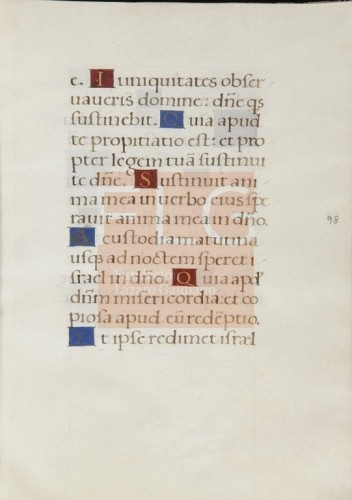 e. Iuniquitates obser
uaueris domine: dñe q̃s
sustinebit. Quia apud
te propitiatio est: et pro
pter legem tuã sustinui
te dñe. Sustinuit ani
ma mea in uerbo eius spe
rauit anima mea in dño.
A custodia matutina
usq; ad noctem speret i
srael in dño. Quia apd'
dñm misericordia: et co
piosa apud eũ redẽptio.
Et ipse redimet israel
98